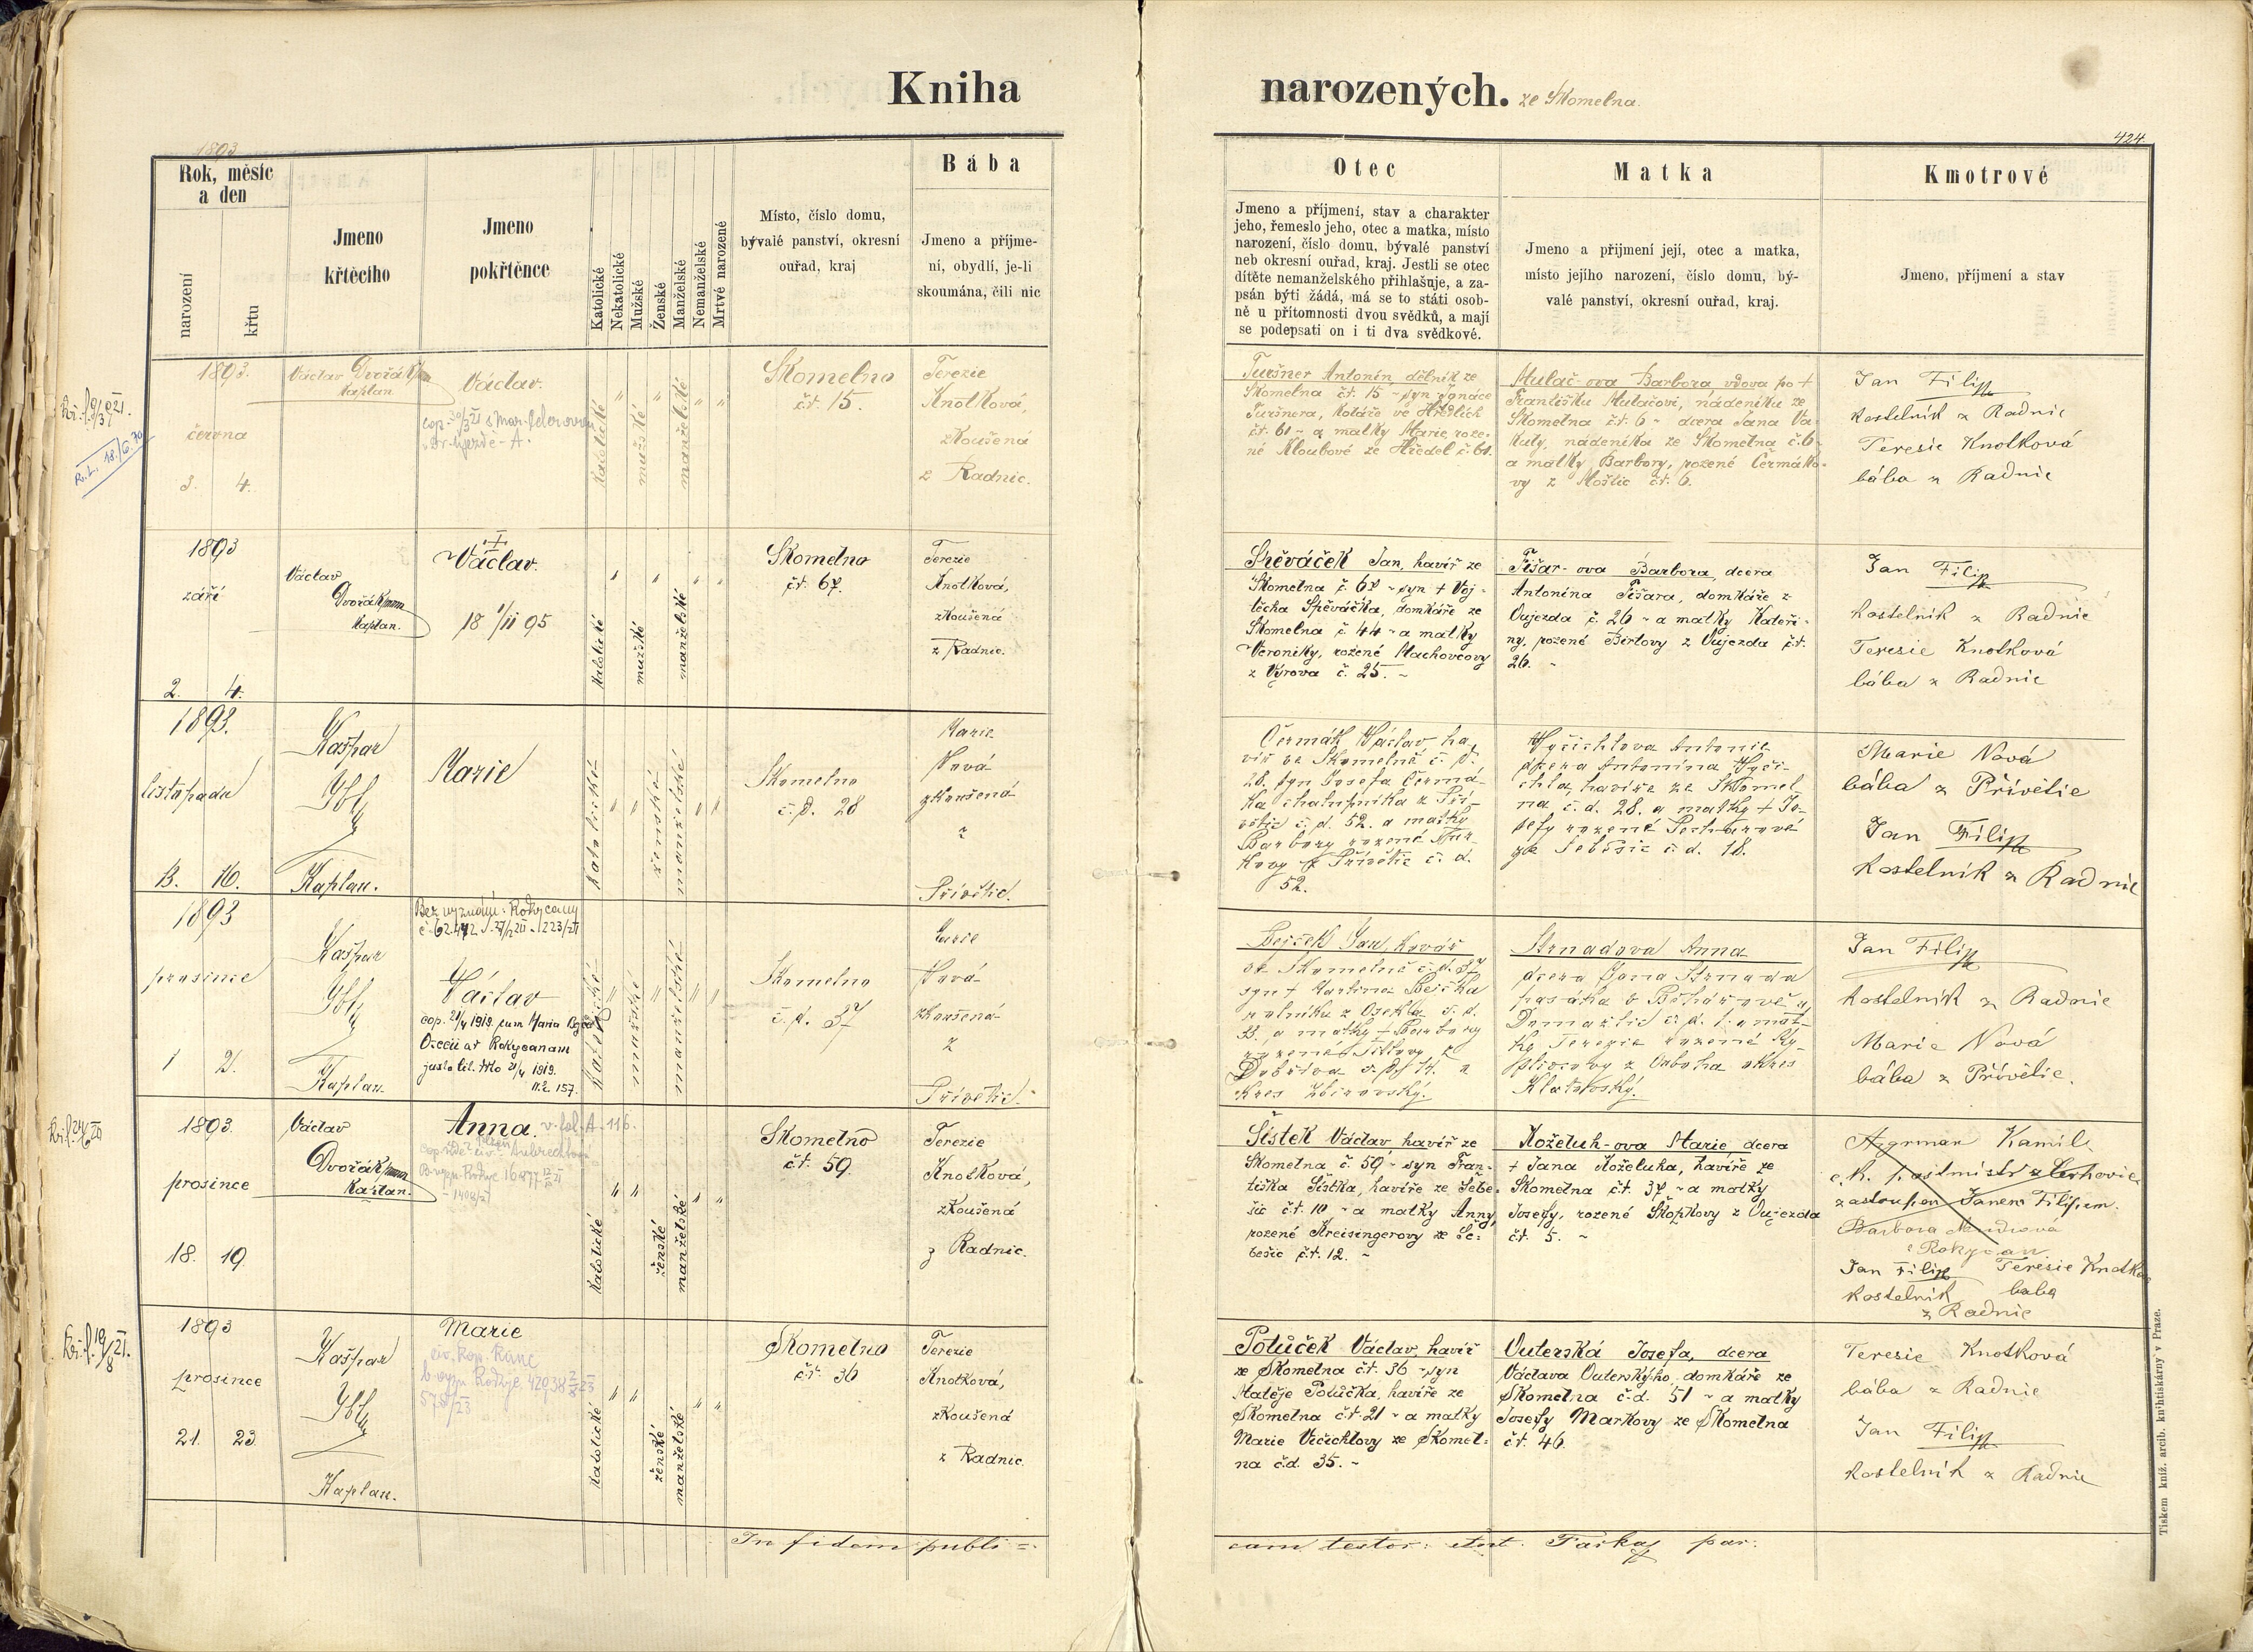 Kniha narozených. ze Skomelna.
424.
1893
Rok, měsíc a den
narození
křtu
Jmeno křtěcího
Jmeno pokřtěnce
Katolické
Nekatolické
Mužské
Ženské
Manželské
Nemanželské
Mrtvé narozené
Místo, číslo domu,
bývalé panství, okresní
ouřad, kraj
Bába
Jmeno a příjme-
ní, obydlí, je-li
skoumána, čili nic
Otec
Jmeno a příjmení, stav a charakter
jeho, řemeslo jeho, otec a matka, místo
narození, číslo domu, bývalé panství
neb okresní ouřad, kraj. Jestli se otec
dítěte nemanželského přihlašuje, a za-
psán býti žádá, má se to státi osob-
ně u přítomnosti dvou svědků, a mají
se podepsati on i ti dva svědkové.
Matka
Jmeno a přijmení její, otec a matka,
místo jejího narození, číslo domu, bý-
valé panství, okresní ouřad, kraj.
Kmotrové
Jmeno, příjmení a stav
1893.
června
3. 4.
Václav Dvořák
Kaplan
Václav.
katolické
mužské
manželské
Skomelno
čt. 15.
Terezie
Knotková,
zkoušená
z Radnic.
Turšner Antonín, dělník ze
Skomelna čt. 15 - syn Ignáce
Turšnera, koláře ve Hředlích
čt. 61 - a matky Marie roze-
né Kloubové ze Hředel č. 61.
Mulač-ova Barbora vdova po +
Františku Mulačovi, nádeníku ze
Skomelna č.t. 6 - dcera Jana Va-
kuly, nádeníka ze Skomelna č. 6 -
a matky Barbory, rozené Čermáko-
vy z Moštic čt. 6.
Jan Filip
kostelník z Radnic
Teresie Knotková
bába z Radnic
1893
září
2. 4.
Václav
Dvořák
kaplan.
Václav.
18 1/II 95
katolické
mužské
manželské
Skomelno
čt. 67.
Terezie
Knotková,
zkoušená
z Radnic.
Spěváček Jan, havíř ze
Skomelna č. 67 - syn + Voj-
těcha Spěváčka, domkáře ze
Skomelna č. 44 - a matky
Veroniky, rozené Machovcovy
z Výrova č. 25. -
Fišar-ova Barbora, dcera
Antonína Fišara, domkáře z
Oujezda č. 26 - a matky Kateři-
ny, rozené Birtovy z Oujezda čt.
26. -
Jan Filip
kostelník z Radnic
Teresie Knotková
bába z Radnic
1893.
listopadu
13. 16.
Kašpar
Ybl
Kaplan.
Marie
katolické
ženské
manželské
Skomelno
č. p. 28
Marie
Nová
zkoušená
z
Přívětic.
Čermák Václav, ha-
víř ve Skomelně č. p.
28. syn Josefa Čermá-
ka chalupníka z Pří-
větic č. p. 52. a matky
Barbory rozené
z Přívětic č. d.
52.
Vyčichlova Antonie
dcera Antonína Vyči-
chla, havíře ze Skomel-
na č. d. 28. a matky + Jo-
sefy rozené
ze Seběsic č. d. 18.
Marie Nová
bába z Přívětic
Jan Filip
kostelník z Radnic
1893
prosince
1 2.
Kašpar
Ybl
Kaplan.
Václav
cop. 21/4 1919. cum Maria
katolické
mužské
manželské
Skomelno
č. p. 37
Marie
Nová
zkoušená
z
Přívětic.
Bejček Jan, kovář
ve Skomelně č. d. 37
syn + Martina Bejčka
rolníka z Oseka č. d.
33. a matky + Barbory
rozené Tittlovy z
Dobříva č. p. 14. o-
kres Zbirovský.
Strnadova Anna
dcera Jana Strnada
Domažlic č. p. 1. a mat-
ky Terezie rozené
okres
Klatovský.
Jan Filip
kostelník z Radnic
Marie Nová
bába z Přívětic.
1893.
prosince
18. 19.
Václav
Dvořák
Kaplan.
Anna. v. fol. A. 116.
katolické
ženské
manželské
Skomelno
čt. 59.
Terezie
Knotková,
zkoušená
z Radnic.
Šístek Václav, havíř ze
Skomelna č. 59 - syn Fran-
tiška Šístka, havíře ze Sebe-
sic čt. 10 - a matky Anny,
rozené Kreisingerovy ze Se-
besic čt. 12. -
Koželuh-ova Marie, dcera
+ Jana Koželuha, havíře ze
Skomelna čt. 37 - a matky
Josefy, rozené Škopkovy z Oujezda
čt. 5. -
Kamil
zastoupen Janem Filipem.
Barbora
Jan Filip Teresie Knotko
kostelník baba
z Radnic
1893
prosince
21. 23.
Kašpar
Ybl
Kaplan.
Marie
katolické
ženské
manželské
Skomelno
čt. 36
Terezie
Knotková,
zkoušená
z Radnic.
Polůček Václav, havíř
ze Skomelna čt. 36 - syn
Matěje Polůčka, havíře ze
Skomelna čt. 21 - a matky
Marie Vičichlovy ze Skomel-
na č.d. 35. -
Outerská Josefa, dcera
Václava Outerského, domkáře ze
Skomelna č.d. 51 - a matky
Josefy Markovy ze Skomelna
čt. 46.
Teresie Knotková
bába z Radnic
Jan Filip
kostelník z Radnic
In fidem publi=
cam testor: Ant. Farka par:
Tiskem kníž. arcib. knihtiskárny v Praze.